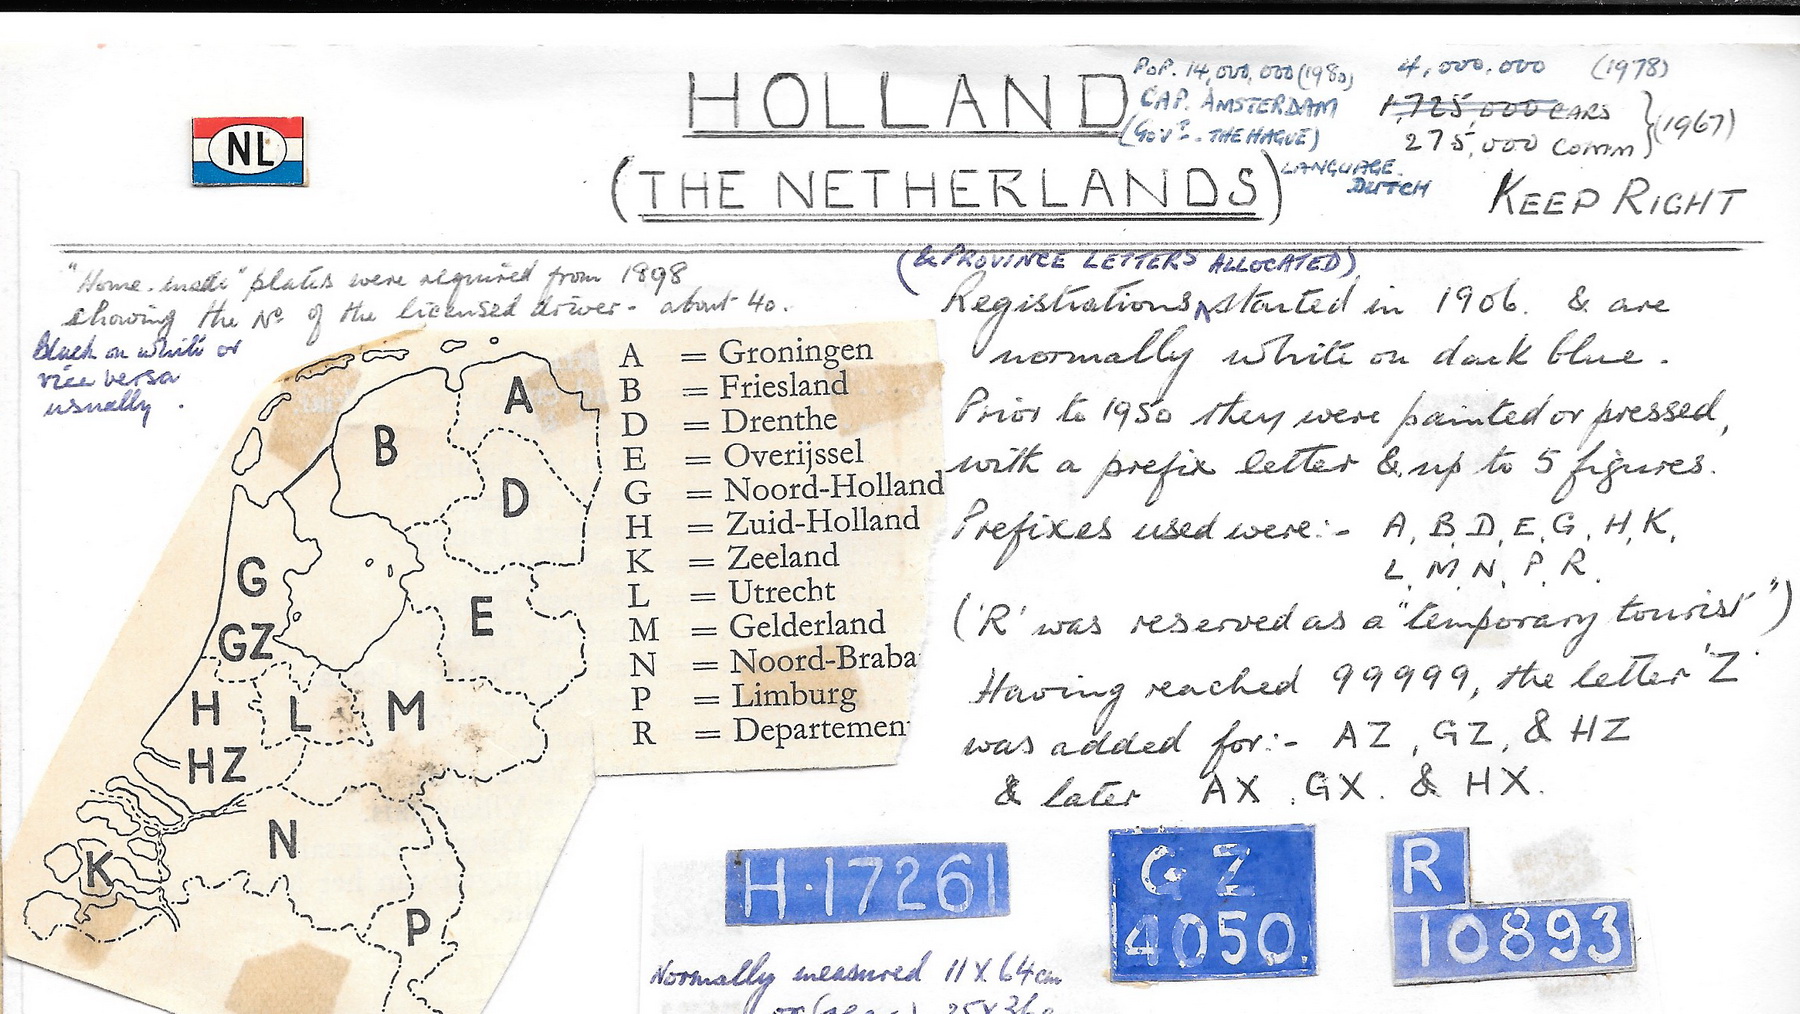 HOLLAND
(THE NETHERLANDS)
POP. 14,000,000 (1980)
CAP. AMSTERDAM
(GOVT. - THE HAGUE)
LANGUAGE.
DUTCH
4,000,000 (1978)
1,725,000 CARS
275,000 COMM
(1967)
KEEP RIGHT
NL
"Home-made" plates were required from 1898
showing the No of the licensed driver - about 40.
Black on white or
vice versa
usually.
A = Groningen
B = Friesland
D = Drenthe
E = Overijssel
G = Noord-Holland
H = Zuid-Holland
K = Zeeland
L = Utrecht
M = Gelderland
N = Noord-Braba
P = Limburg
R = Departemen
A
B
D
G
E
GZ
H
L
M
HZ
N
K
P
(& PROVINCE LETTERS ALLOCATED)
Registrations started in 1906. & are
normally white on dark blue.
Prior to 1950 they were painted or pressed,
with a prefix letter & up to 5 figures.
Prefixes used were:- A, B, D, E, G, H, K,
L, M, N, P, R.
('R' was reserved as a "temporary tourist")
Having reached 99999, the letter 'Z'
was added for:- AZ, GZ, & HZ
& later AX, GX. & HX.
H·17261
GZ
4050
R
10893
Normally measured 11 X 64cm
25X36